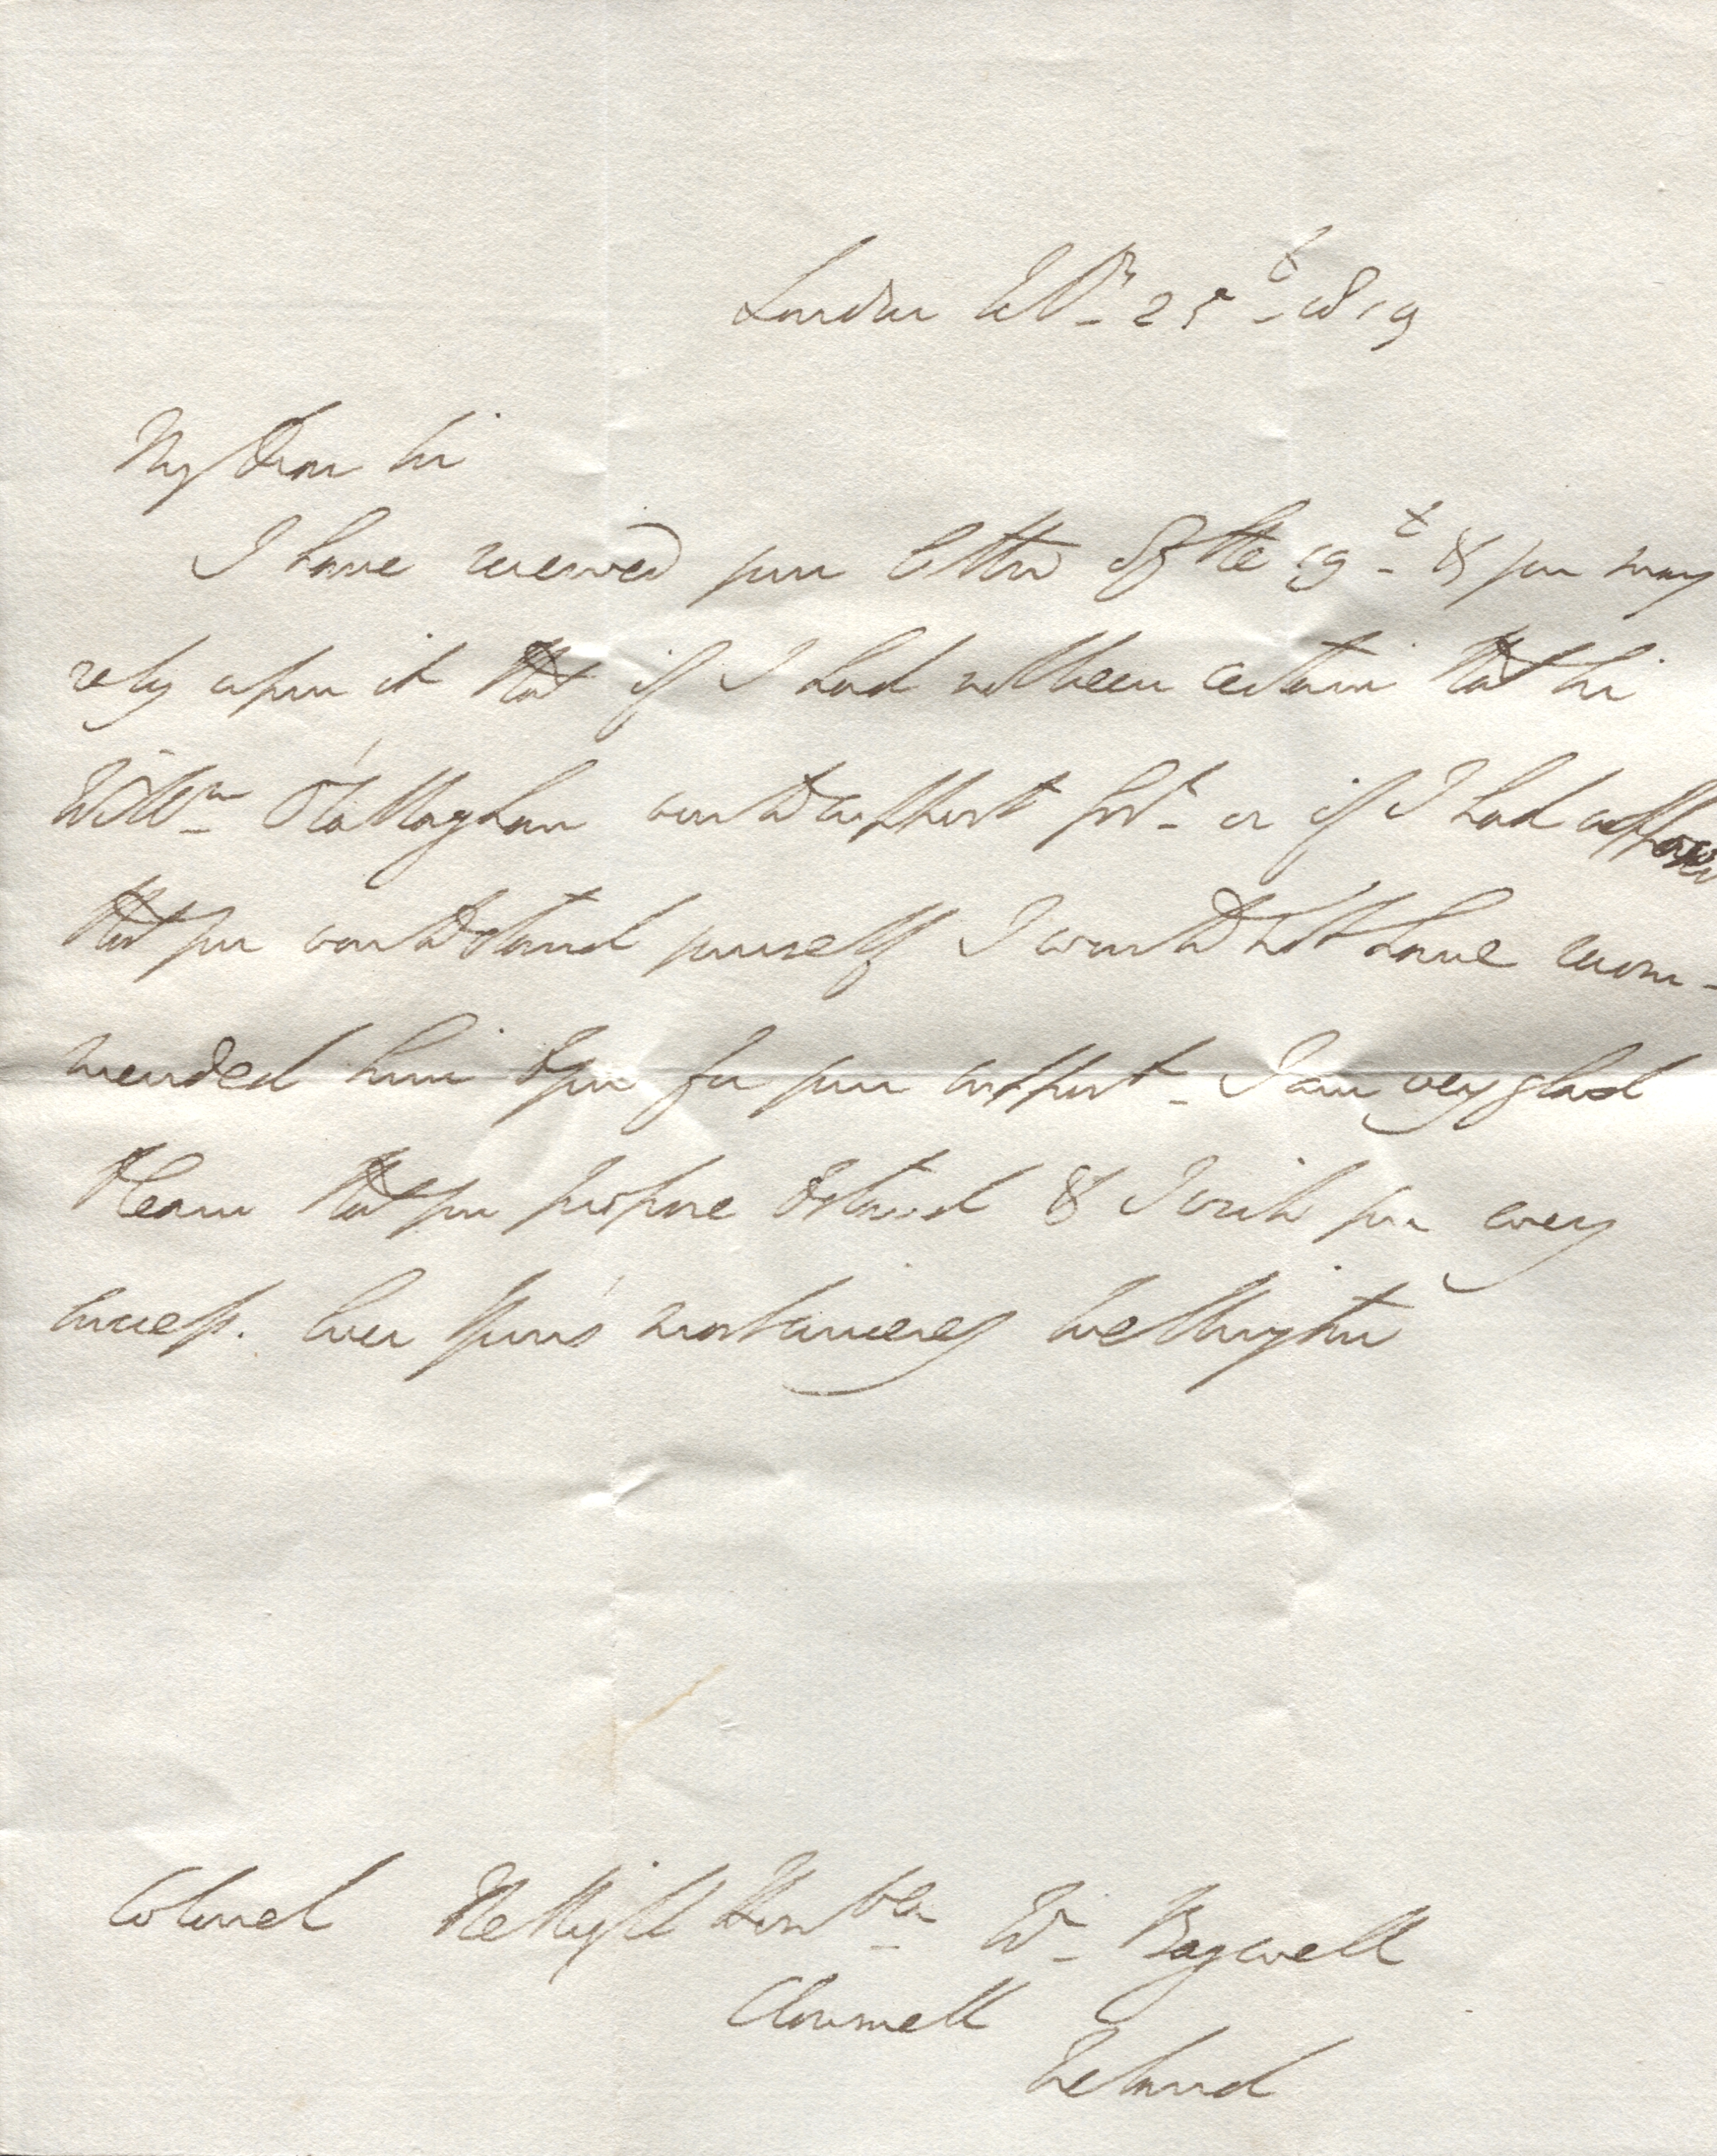 London Feb^r. 25^t. 1819
My Dear Sir
I have received your letter of the 19^t. & you may
rely upon it that if I had not been certain that Sir
Will^m. O'Callaghan would support Gov^t. or if I had supposed
that you would stand yourself I would not have recom-
mended him to you for your support. I am very glad
to learn that you propose to stand & I wish you every
success. Ever Yours most sincerely Wellington
Colonel The Right Hon^ble. W^m. Bagwell
Clonmell
Ireland